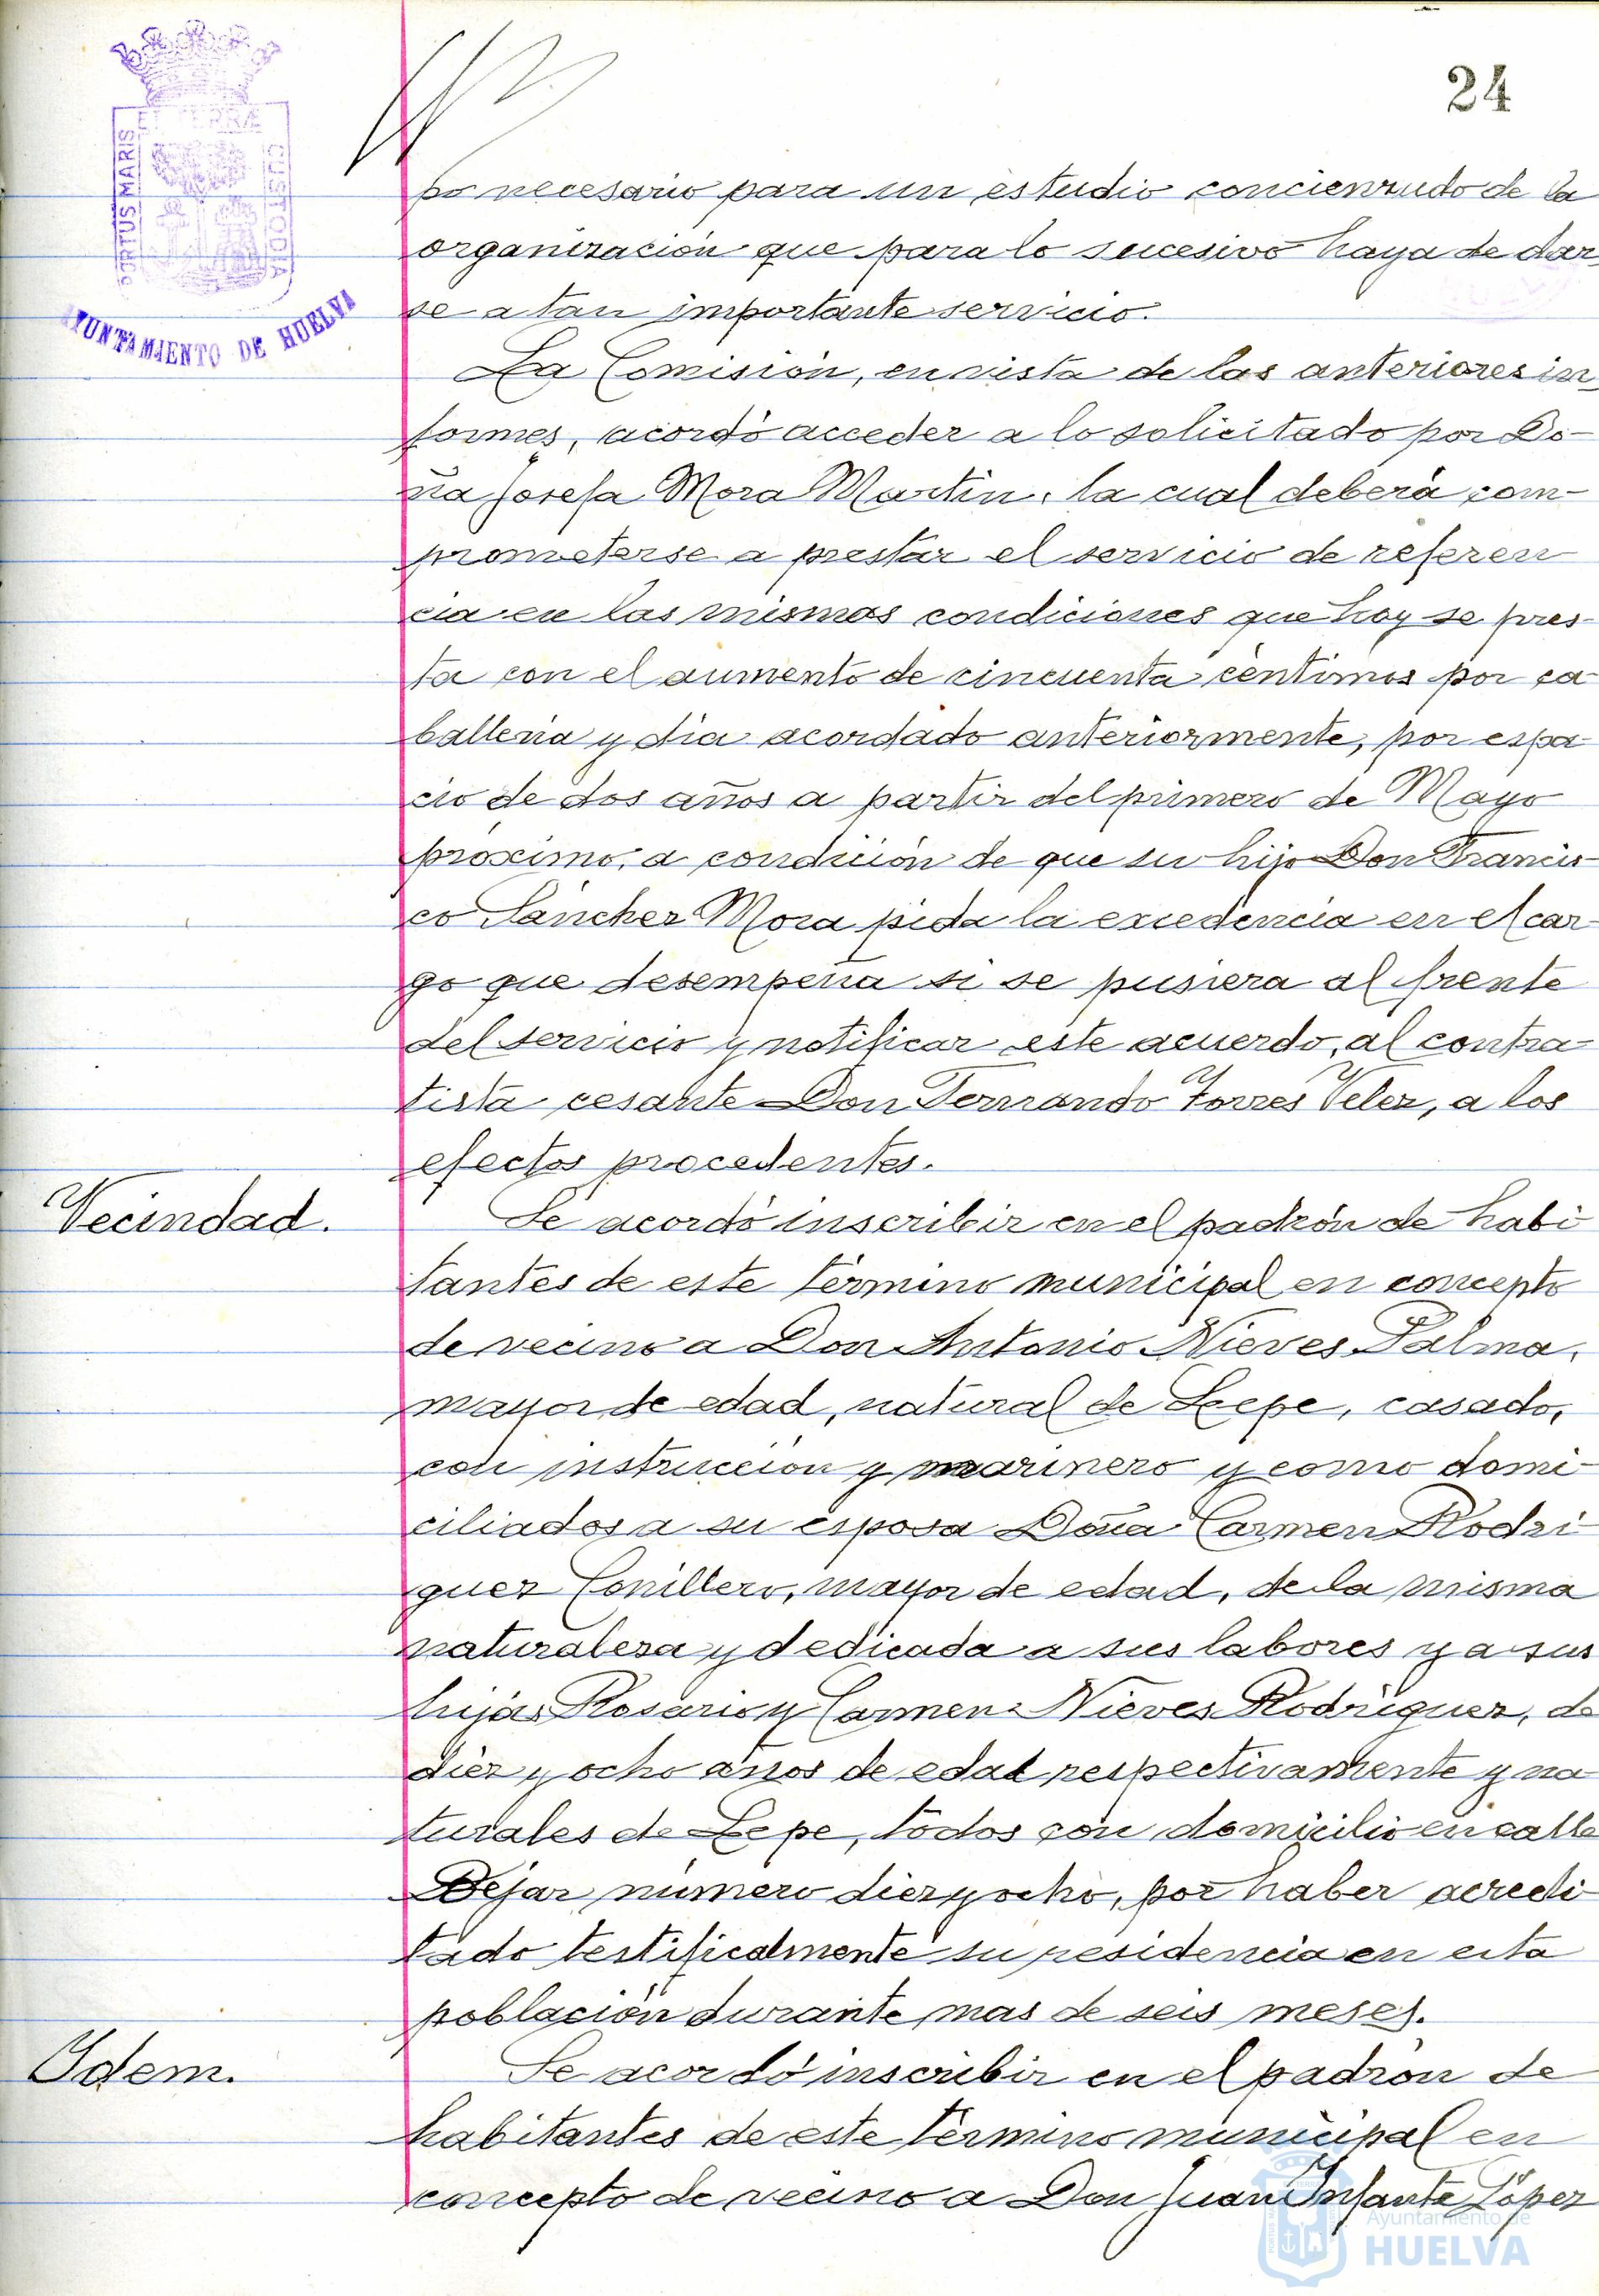 24
PORTUS MARIS ET TERRÆ CUSTODIA
AYUNTAMIENTO DE HUELVA
po necesario para un estudio concienzudo de la
organización que para lo sucesivo haya de dar-
se a tan importante servicio.
La Comisión, en vista de los anteriores in-
formes, acordó acceder a lo solicitado por Do-
ña Josefa Mora Martin, la cual deberá com-
prometerse a prestar el servicio de referen
cia en las mismas condiciones que hoy se pres-
ta con el aumento de cincuenta céntimos por ca-
ballería y dia acordado anteriormente, por espa-
cio de dos años a partir del primero de Mayo
próximo, a condición de que su hijo Don Francis-
co Sánchez Mora pida la excedencia en el car-
go que desempeña si se pusiera al frente
del servicio y notificar este acuerdo, al contra-
tista cesante Don Fernando Torres Velez, a los
efectos procedentes.
Vecindad.
Se acordó inscribir en el padrón de habi-
tantes de este término municipal en concepto
de vecino a Don Antonio Nieves Palma,
mayor de edad, natural de Lepe, casado,
con instrucción y marinero y como domi-
ciliados a su esposa Doña Carmen Rodri-
guez Conillero, mayor de edad, de la misma
naturaleza y dedicada a sus labores y a sus
hijas Rosario y Carmen Nieves Rodríguez, de
diez y ocho años de edad respectivamente y na-
turales de Lepe, todos con domicilio en calle
Bejar número diez y ocho, por haber acredi-
tado testificalmente su residencia en esta
población durante mas de seis meses.
Ydem.
Se acordó inscribir en el padrón de
habitantes de este término municipal en
concepto de vecino a Don Juan Infante López
Ayuntamiento de
HUELVA